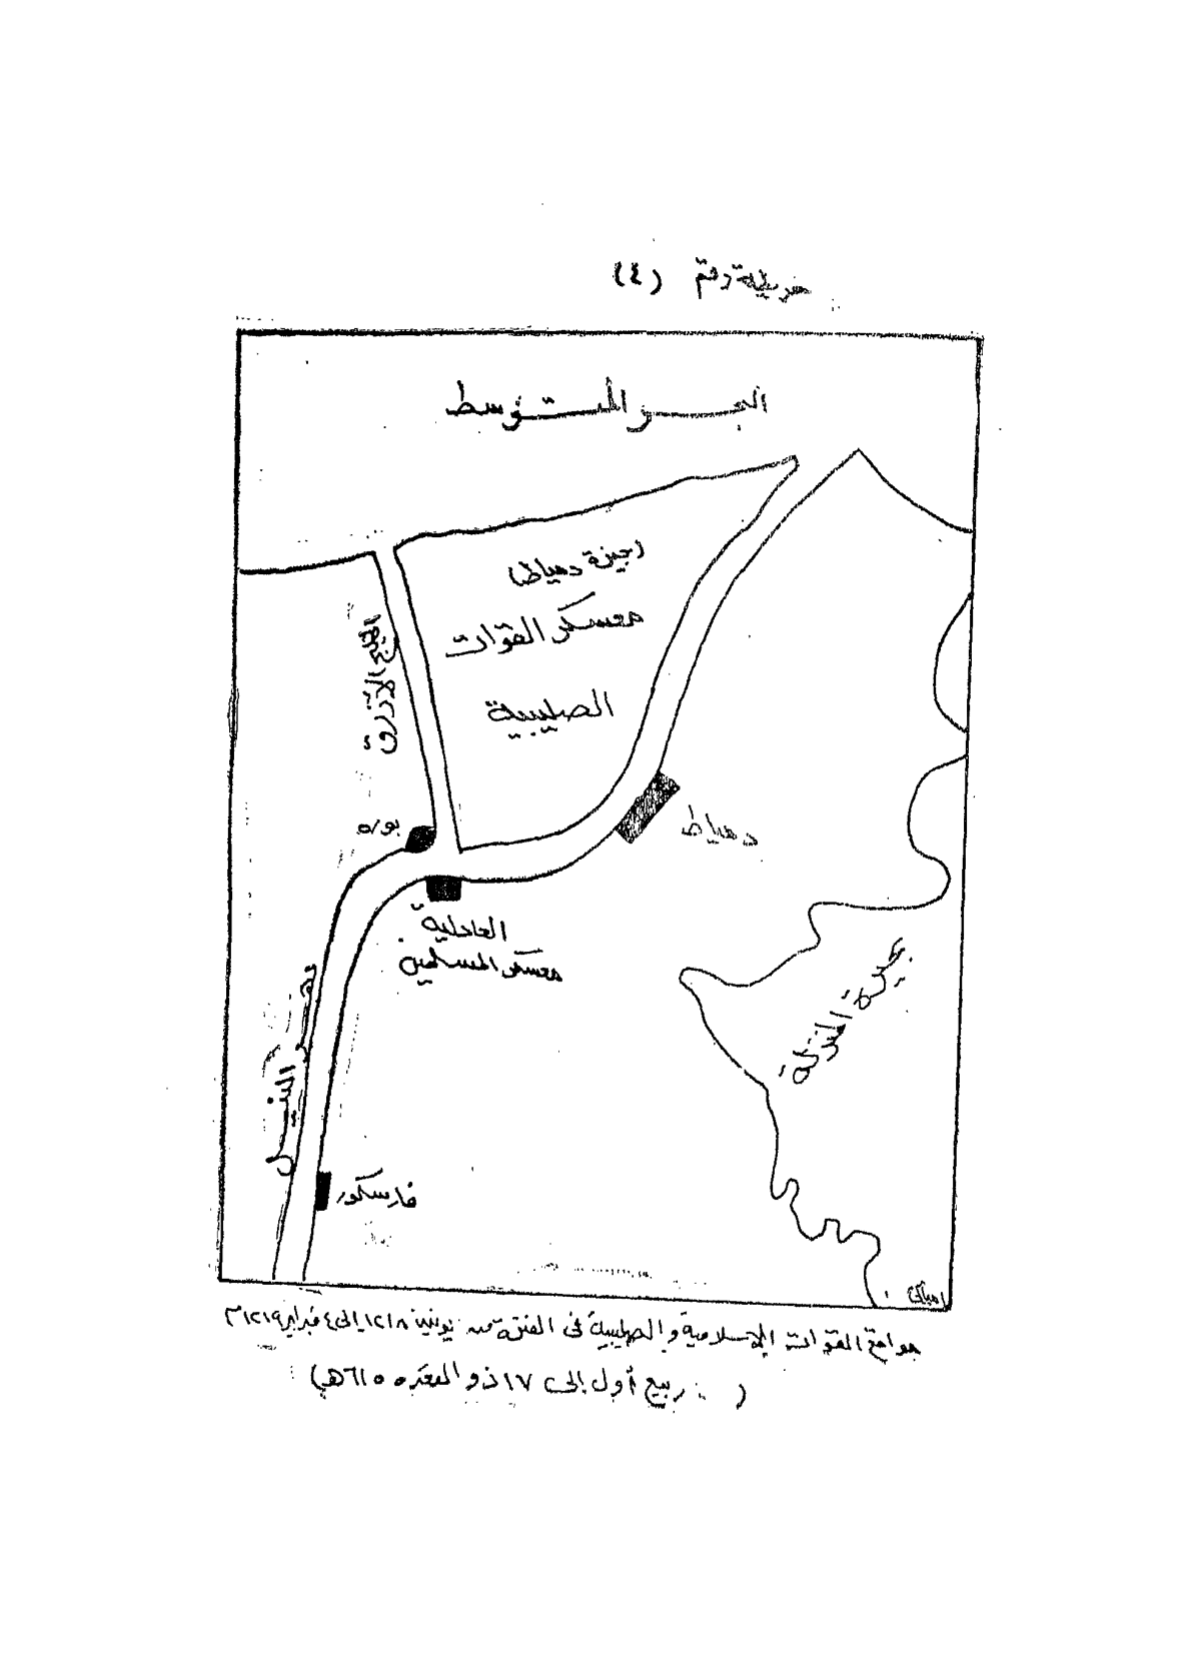 خريطة رقم (٤)
البحر المتوسط
(جيزة دمياط)
معسكر القوات
الصليبية
الخليج الأزرق
بوره
دمياط
العادلية
معسكر المسلمين
بحيرة المنزلة
نهر النيل
فارسكور
مواقع القوات الإسلامية والصليبية فى الفترة من يونية ١٢١٨ إلى ٤ فبراير ١٢١٩م
( ربيع أول إلى ١٧ ذو القعده ٦١٥هـ)